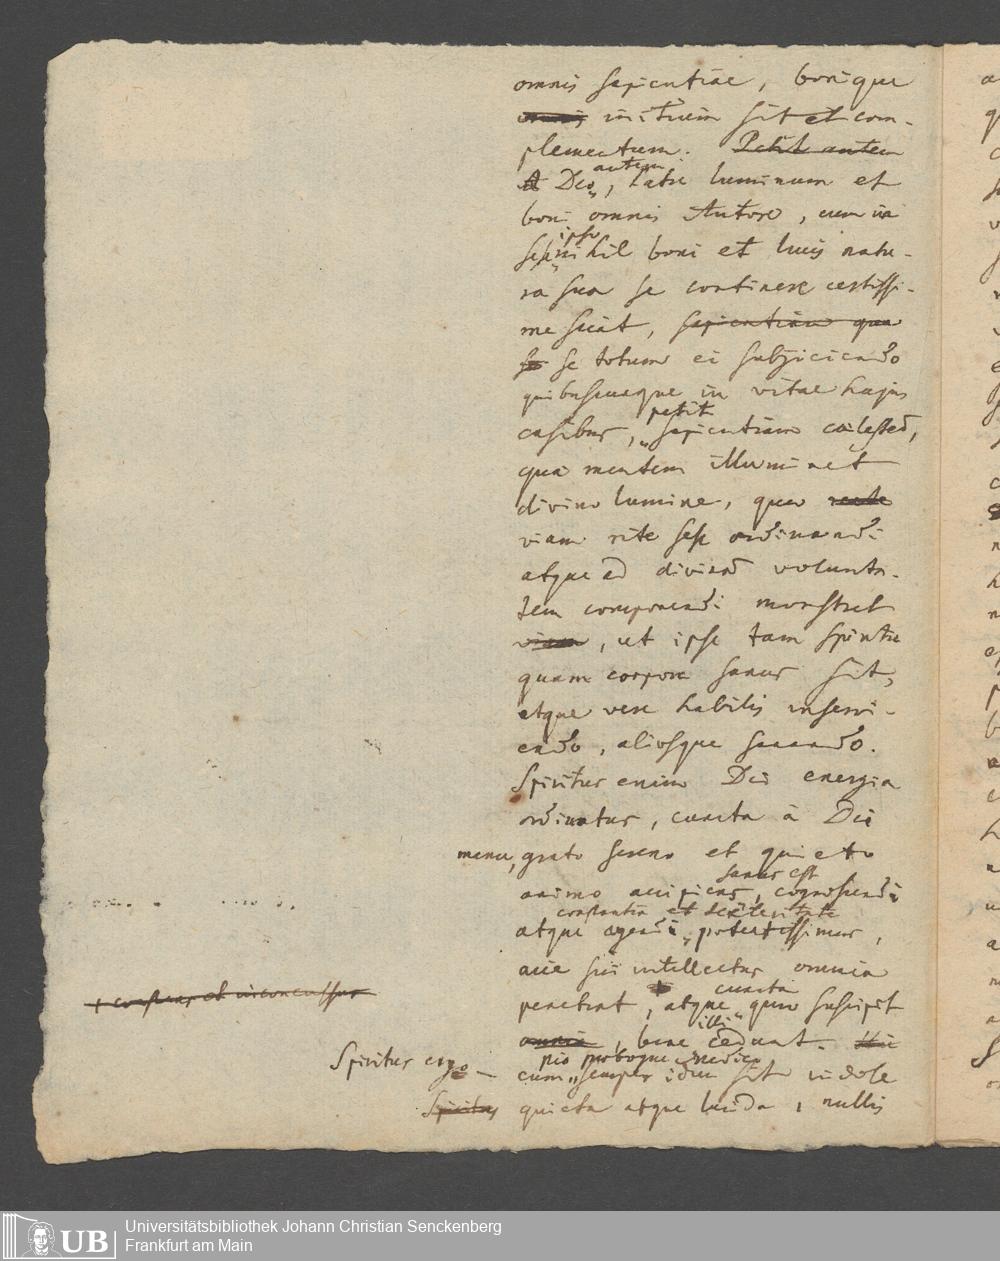 omnis sapientiae, bonique
omnis initium sit et com-
plementum. Petit autem
A Deo autem, Patre luminum et
boni omnis Autore, cum in
se ipso nihil boni et lucis natu-
ra sua se continere certissi-
me sciat, sapientiam qua
se totum ei subjiciendo
quibuscunque in vitae hujus
casibus, petit sapientiam coelestem,
qua mentem illuminet
divino lumine, quo
viam rite sese ordinandi
atque ad divinam volunta-
tem componendi monstret
viam, ut ipse tam spiritu
quam corpore sanus sit,
atque vere habilis inservi-
endo, aliosque sanando.
Spiritus enim Dei energia
ordinatur, cuncta à Dei
manu, grato sereno et quieto
animo accipiens, sanus est cognoscendi
constantia et dexteritate
atque agendi potentissimus,
acie sui intellectus omnia
penetrat, atque cuncta quae suscipit
+ constans et inconcussus
omnia illi, bene cedunt.
Spiritus ergo - cum pio probroque medico semper idem sit indole
Spiritus quieta atque lucida, nullis
Universitätsbibliothek Johann Christian Senckenberg
Frankfurt am Main
UB